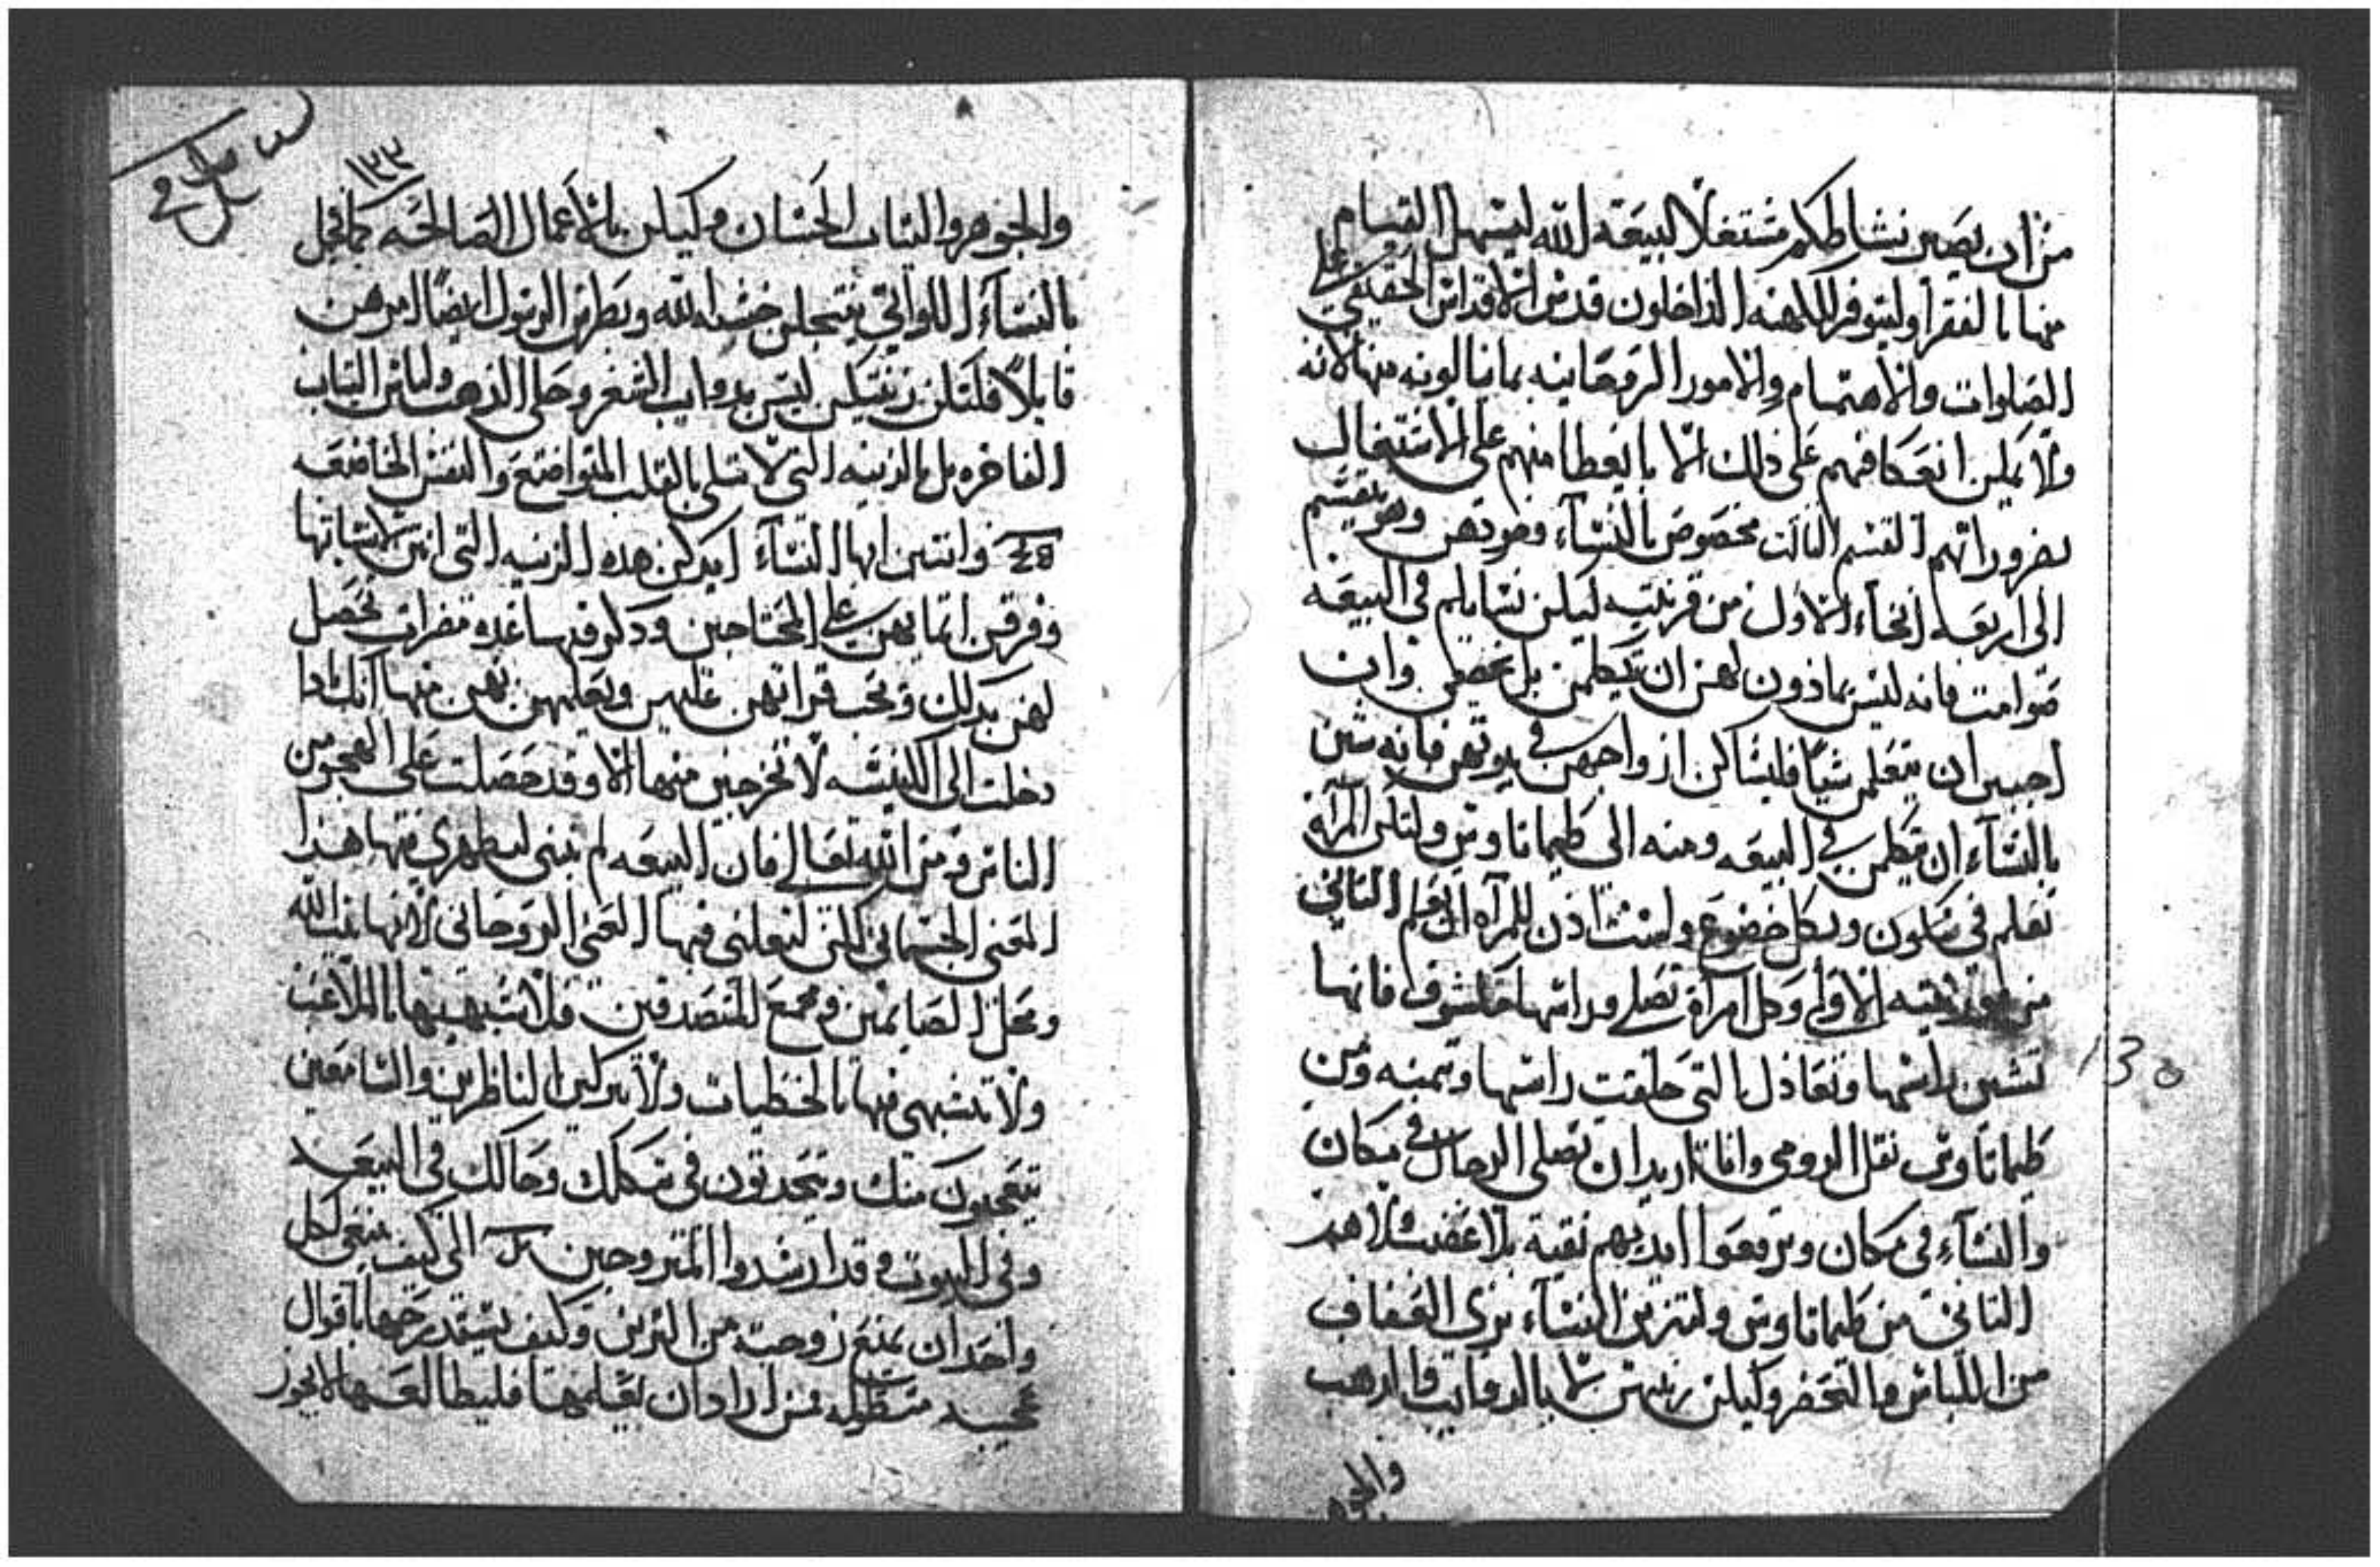 من ان يصير نشاطكم مشتغلا لبيعة الله ليسهل القيام
منها بالفقرا وليتوفر الكهنه الداخلون قدس الاقداس الحقيقي على
الصلوات والاهتمام والامور الروحانيه بما ينالونه منها لانه
ولا يمكن انعكافهم على ذلك الا بالعطا منهم على الاشتغال
بضروراتهم القسم الثالث مخصوص بالنساء وهو يقسم
الى اربعة انحاء الاول من قرنتيه ليكن نسايكم في البيعه
صوامت فانه ليس بماذون لهن ان يتكلمن بل يخضعن وان
احببن ان يتعلمن شيا فليسالن ازواجهن في بيوتهن فانه شين
بالنساء ان يتكلمن في البيعه ومنه الى طيماتاوس ولتكن المرآه
تتعلم في سكون وبكل خضوع ولست اذن للمرآه ان تعلم الثاني
من قرنتيه الاولى وكل امرآة تصلي وراسها مكشوف فانها
تشين راسها وتعادل بالتي حلقت راسها ومنه ومن
طيماتاوس نقل الرومي وانا اريد ان تصلي الرجال في مكان
والنساء في مكان ويرفعوا ايديهم نقية بلا غضب ولا هم
الثالث من طيماتاوس ولتتزين النساء بزي العفاف
من اللباس والتخفر وليكن زينتهن لا بالدوايب والدهب
والجوهر
130
١٣٣
والجوهر والثياب الحسان وليكن بالاعمال الصالحه كما يجمل
بالنساء اللواتي ينتحلن خشية الله وبطرس الرسول ايضا امرهن
قايلا فلتكن زينتكن ليس بدوايب الشعر وحلي الذهب ولباس الثياب
الفاخره بل بالزينه التي لا تبلى بالقلب المتواضع والنفس الخاشعه
وانتن ايها النساء ابدلن هذه الزينه التي انتن لابساتها
وفرقن اثمانهن على المحتاجين وذكر فيها عدة مضرات تحصل
لهن بذلك ويجب قراتهن عليهن وتعليمهن بهن منها انك اذا
دخلت الى الكنيسه لا تخرجين منها الا وقد حصلت على اللعنة من
الناس ومن الله تعالى فان البيعه لم تبنى لتظهري فيها هذا
المعنى الجسماني لكن لتعلني فيها المعنى الروحاني لانها بيت الله
ومحل الصايمين ومجمع للمتصدقين فلا تشبهيها بالملاعب
ولا تتشبهي فيها بالخطيات ولا تتركين الناظرين والسامعين
يتعجبون منك ويتحدثون في شكلك وحالك في البيعه
وفي البيوت وقد ارشدوا المتزوجين الى كيف ينبغي لكل
واحد ان يمنع زوجته من التزين وكيف يستدرجها باقوال
عجيبه مطوله فمن اراد ان يعلمها فليطالعها لا يجوز